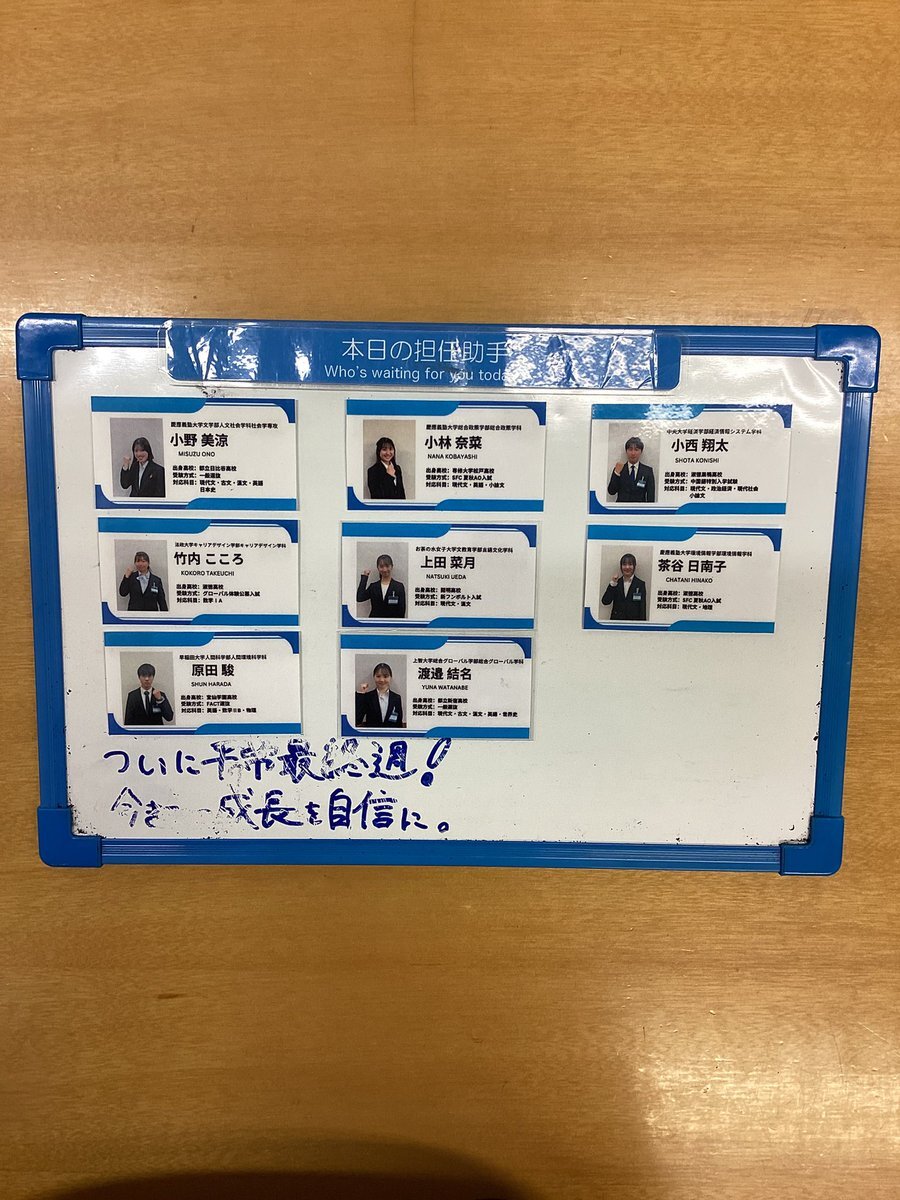 本日の担任助手
Who's waiting for you toda
慶應義塾大学文学部人文社会学科社会学専攻
小野 美涼
MISUZU ONO
出身高校：都立日比谷高校
受験方式：一般選抜
対応科目：現代文・古文・漢文・英語
日本史
慶應義塾大学総合政策学部総合政策学科
小林 奈菜
NANA KOBAYASHI
出身高校：専修大学松戸高校
受験方式：SFC 夏秋AO入試
対応科目：現代文・英語・小論文
中央大学経済学部経済情報システム学科
小西 翔太
SHOTA KONISHI
出身高校：淑徳巣鴨高校
受験方式：中国語特別入学試験
対応科目：現代文・政治経済・現代社会
小論文
法政大学キャリアデザイン学部キャリアデザイン学科
竹内 こころ
KOKORO TAKEUCHI
出身高校：淑徳高校
受験方式：グローバル体験公募入試
対応科目：数学ⅠA
お茶の水女子大学文教育学部言語文化学科
上田 菜月
NATSUKI UEDA
出身高校：開明高校
受験方式：新フンボルト入試
対応科目：現代文・漢文
慶應義塾大学環境情報学部環境情報学科
茶谷 日南子
CHATANI HINAKO
出身高校：淑徳高校
受験方式：SFC 夏秋AO入試
対応科目：現代文・地理
早稲田大学人間科学部人間環境科学科
原田 駿
SHUN HARADA
出身高校：宝仙学園高校
受験方式：FACT選抜
対応科目：英語・数学ⅡB・物理
上智大学総合グローバル学部総合グローバル学科
渡邉 結名
YUNA WATANABE
出身高校：都立新宿高校
受験方式：一般選抜
対応科目：現代文・古文・漢文・英語・世界史
ついに平常最終週！
今 成長を自信に。